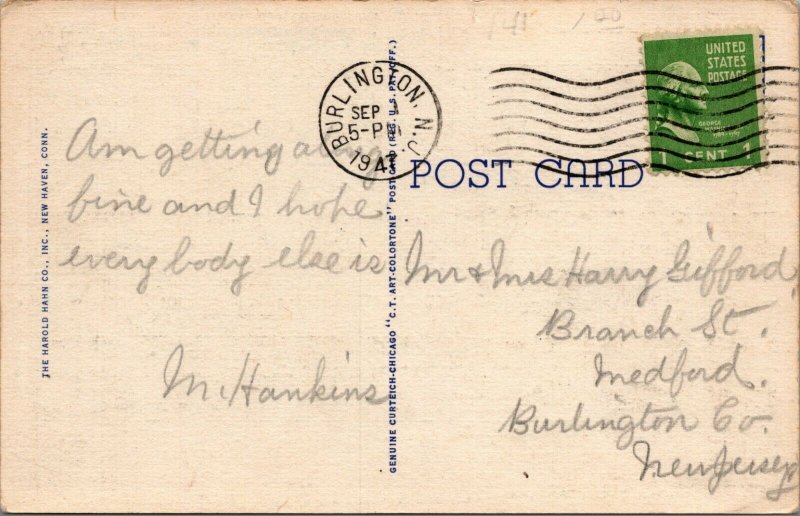 BURLINGTON, N.J.
SEP
5-PM
194
UNITED
STATES
POSTAGE
GEORGE
WASHINGTON
1 CENT 1
POST CARD
Am getting along
fine and I hope
everybody else is
M. Hankins
Mr & Mrs Harry Gifford
Branch St.
Medford.
Burlington Co.
New Jersey
THE HAROLD HAHN CO., INC., NEW HAVEN, CONN.
GENUINE CURTEICH-CHICAGO "C.T. ART-COLORTONE" POST CARD (REG. U.S. PAT. OFF.)